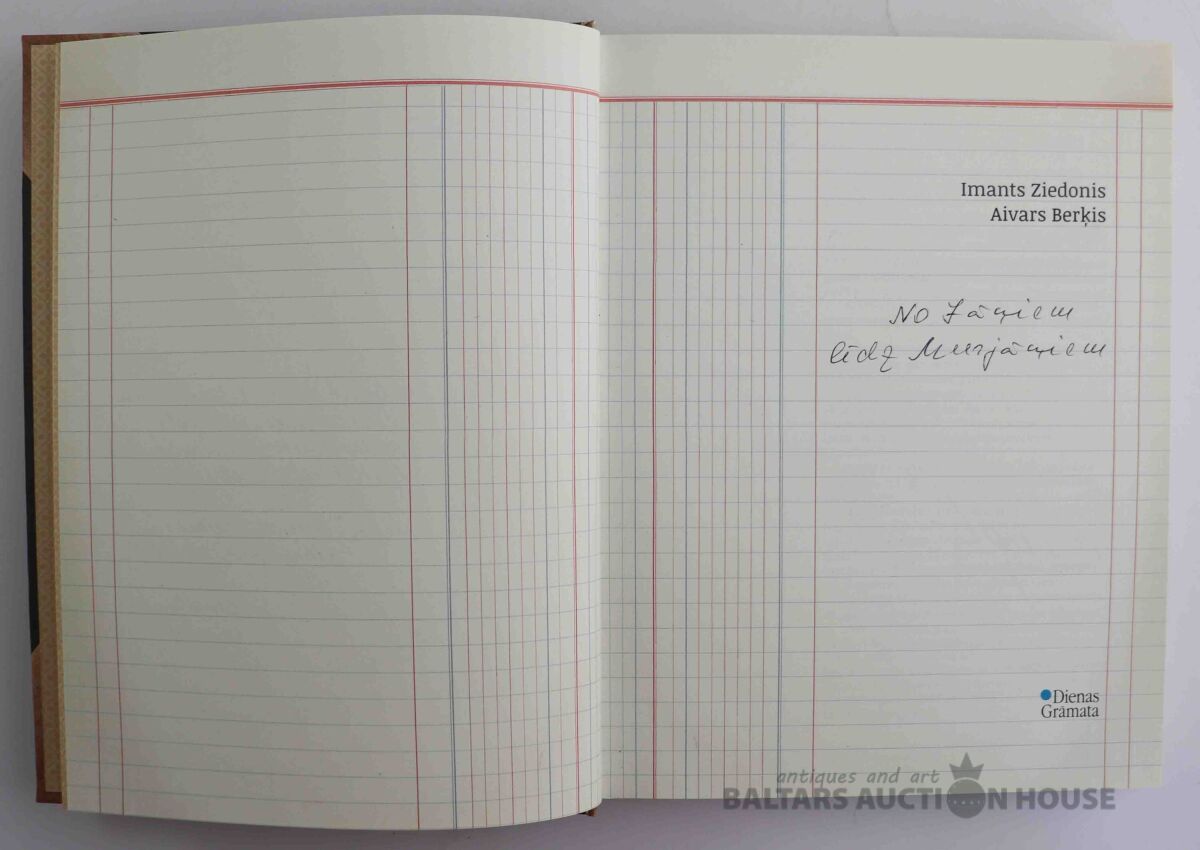 Imants Ziedonis
Aivars Berķis
No Jāņiem
līdz Murjāņiem
Dienas
Grāmata
antiques and art
BALTARS AUCTION HOUSE